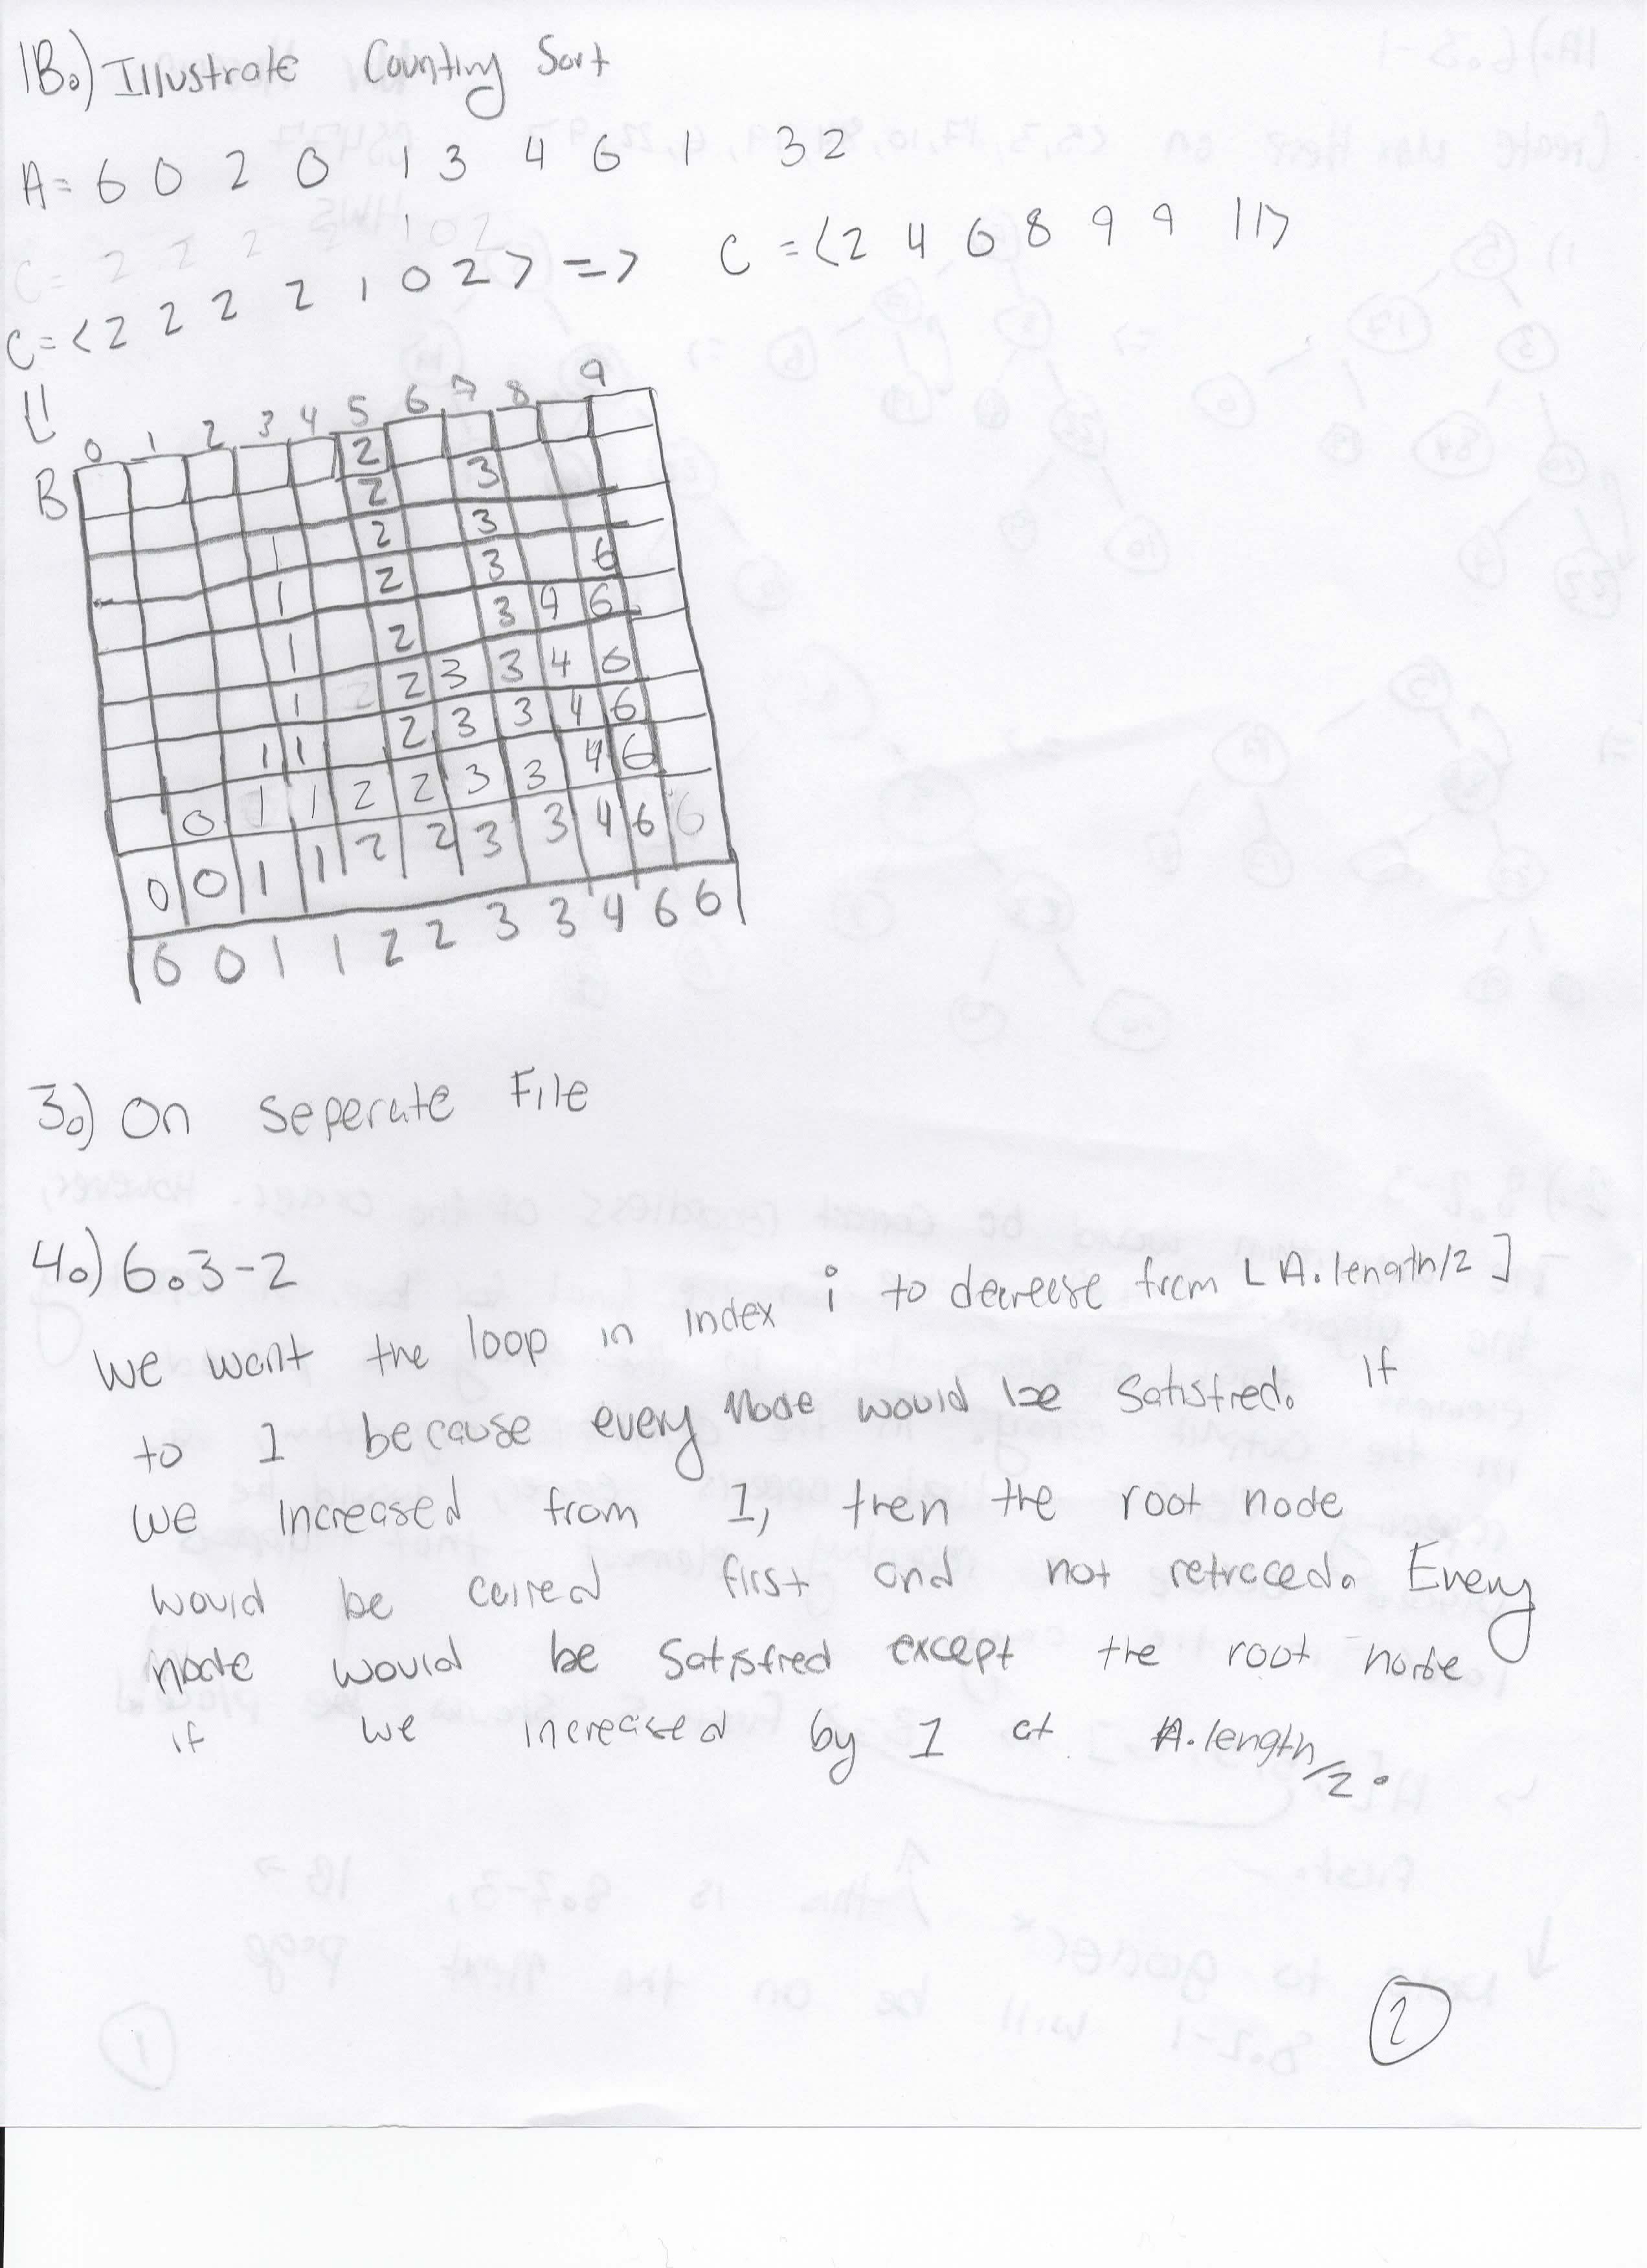 1B.) Illustrate Counting Sort
A= 6 0 2 0 1 3 4 6 1 3 2
C= 2 2 2 2 1 0 2
C=<2 2 2 2 1 0 2> => C = <2 4 6 8 9 9 11>
0 1 2 3 4 5 6 7 8 9
B 2
2 3
1 2 3
1 2 3 6
1 2 3 4 6
1 2 3 3 4 6
1 1 2 3 3 4 6
0 1 1 2 2 3 3 4 6
0 0 1 1 2 2 3 3 4 6 6
0 0 1 1 2 2 3 3 4 6 6
3.) On Seperate File
4.) 6.3-2
We want the loop in index i to decrease from ⌊A.length/2⌋
to 1 because every Node would be Satisfied. If
we increased from 1, then the root node
would be called first and not retraced. Every
node would be Satisfied except the root node
if we increased by 1 at A.length/2.
2